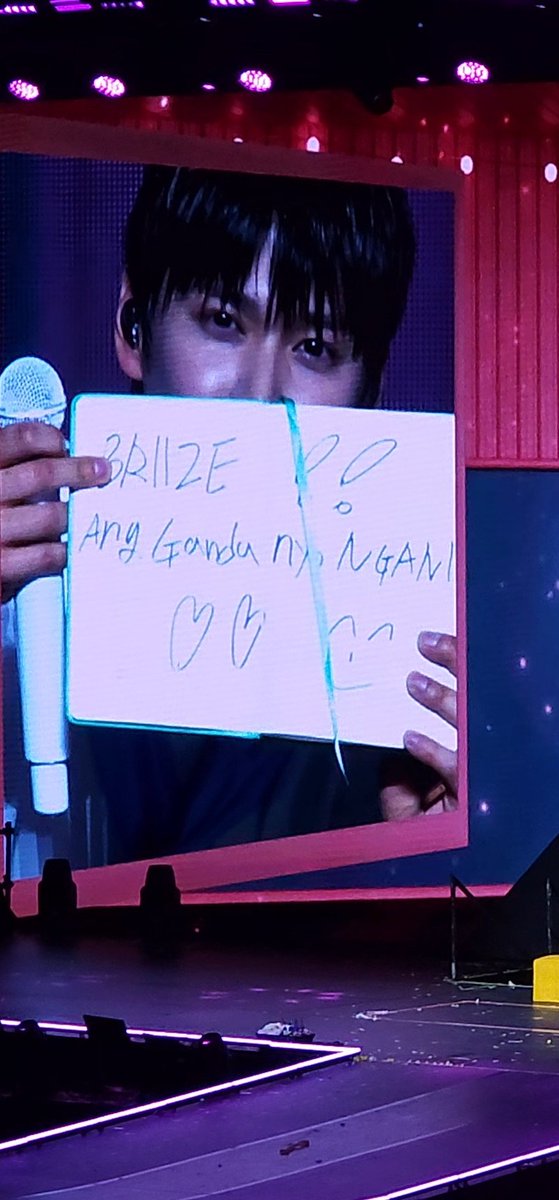 BRIIZE !!
Ang Ganda nyo NGANI